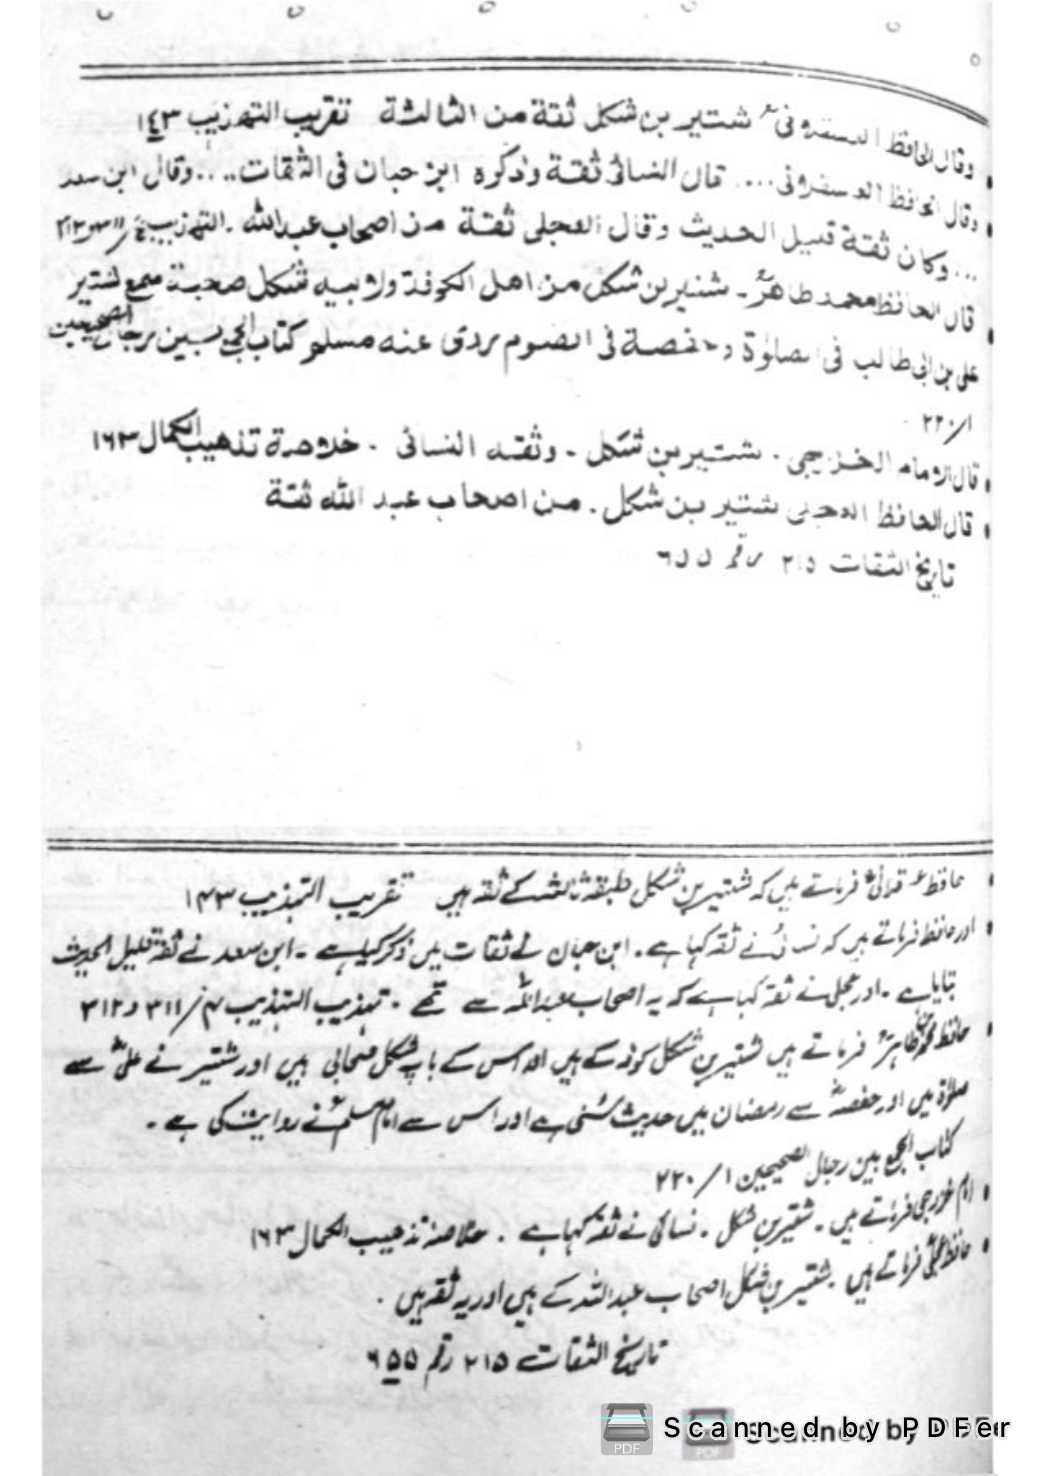 وقال الحافظ العسقلانی شتیر بن شکل ثقة من الثالثة تقریب التهذیب ١٤٣
وقال الحافظ العسقلانی .... قال النسائی ثقة وذکره ابن حبان فی الثقات .... وقال ابن سعد
... وکان ثقة قلیل الحدیث وقال العجلی ثقة من اصحاب عبدالله . التهذیب
قال الحافظ محمد طاهر - شتیر بن شکل من اهل الکوفة ولابیه شکل صحبة سمع
علی بن ابی طالب فی الصلوٰة وحفصة فی الصوم روی عنه مسلم کتاب الجمع بین رجال الصحیحین
١/٢٢٠
قال الامام الخزرجی . شتیر بن شکل . وثقه النسائی . خلاصة تذهیب الکمال ١٦٣
قال الحافظ العجلی شتیر بن شکل . من اصحاب عبد الله ثقة
تاریخ الثقات ٢١٥ رقم ٦٥٥
حافظ عسقلانی فرماتے ہیں کہ شتیر بن شکل طبقہ ثالثہ کے ثقہ ہیں تقریب التہذیب ١٤٣
اور حافظ فرماتے ہیں کہ نسائی نے ثقہ کہا ہے . ابن حبان نے ثقات میں ذکر کیا ہے - ابن سعد نے ثقہ قلیل الحدیث
بتایا ہے . اور عجلی نے ثقہ کہا ہے کہ یہ اصحاب عبداللہ سے تھے . تہذیب التہذیب ٤/٣١١ و ٣١٢
حافظ محمد طاہر فرماتے ہیں شتیر بن شکل کوفہ کے ہیں اور اس کے باپ شکل صحابی ہیں اور شتیر نے علی سے
صلاۃ میں اور حفصہ سے رمضان میں حدیث سنی ہے اور اس سے امام مسلم نے روایت کی ہے .
کتاب الجمع بین رجال الصحیحین ١/٢٢٠
امام خزرجی فرماتے ہیں . شتیر بن شکل . نسائی نے ثقہ کہا ہے . خلاصہ تذهیب الکمال ١٦٣
حافظ عجلی فرماتے ہیں شتیر بن شکل اصحاب عبداللہ کے ہیں اور یہ ثقہ ہیں .
تاریخ الثقات ٢١٥ رقم ٦٥٥
Scanned by PDFer
Scanned by PDFer